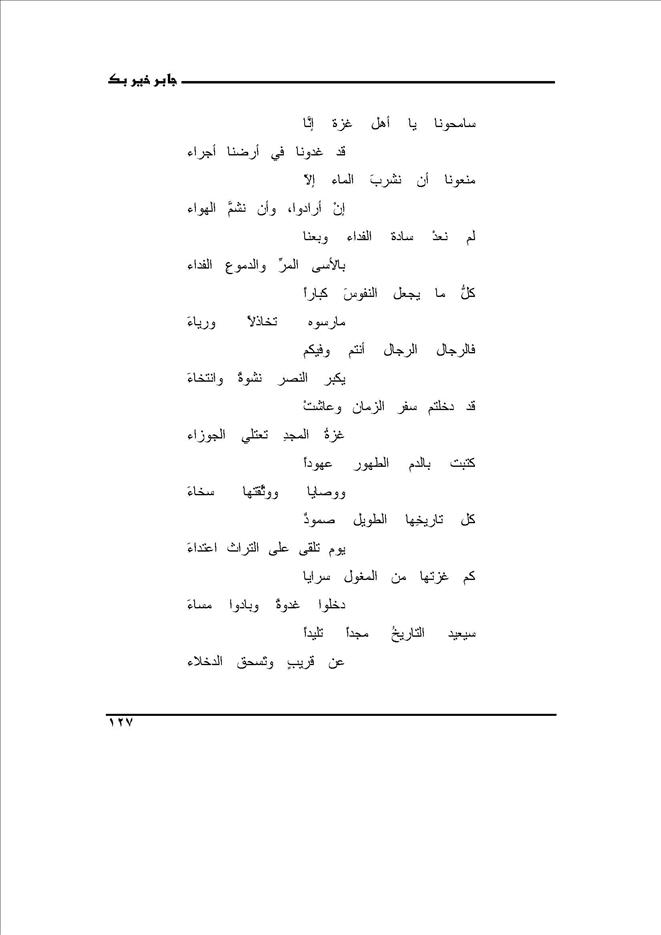 جابر خير بك
سامحونا يا أهل غزة إنَّا
قد غدونا في أرضنا أجراء
منعونا أن نشربَ الماء إلاّ
إنْ أرادوا، وأن نشمَّ الهواء
لم نعدْ سادة الفداء وبعنا
بالأسى المرِّ والدموع الفداء
كلُّ ما يجعل النفوسَ كباراً
مارسوه تخاذلاً ورياءَ
فالرجال الرجال أنتم وفيكم
يكبر النصر نشوةً وانتخاءَ
قد دخلتم سفر الزمان وعاشتْ
غزةُ المجدِ تعتلي الجوزاء
كتبت بالدم الطهور عهوداً
ووصايا ووثّقتها سخاءَ
كل تاريخِها الطويل صمودٌ
يوم تلقى على التراث اعتداءَ
كم غزتها من المغول سرايا
دخلوا غدوةً وبادوا مساءَ
سيعيد التاريخُ مجداً تليداً
عن قريبٍ وتسحق الدخلاء
١٢٧